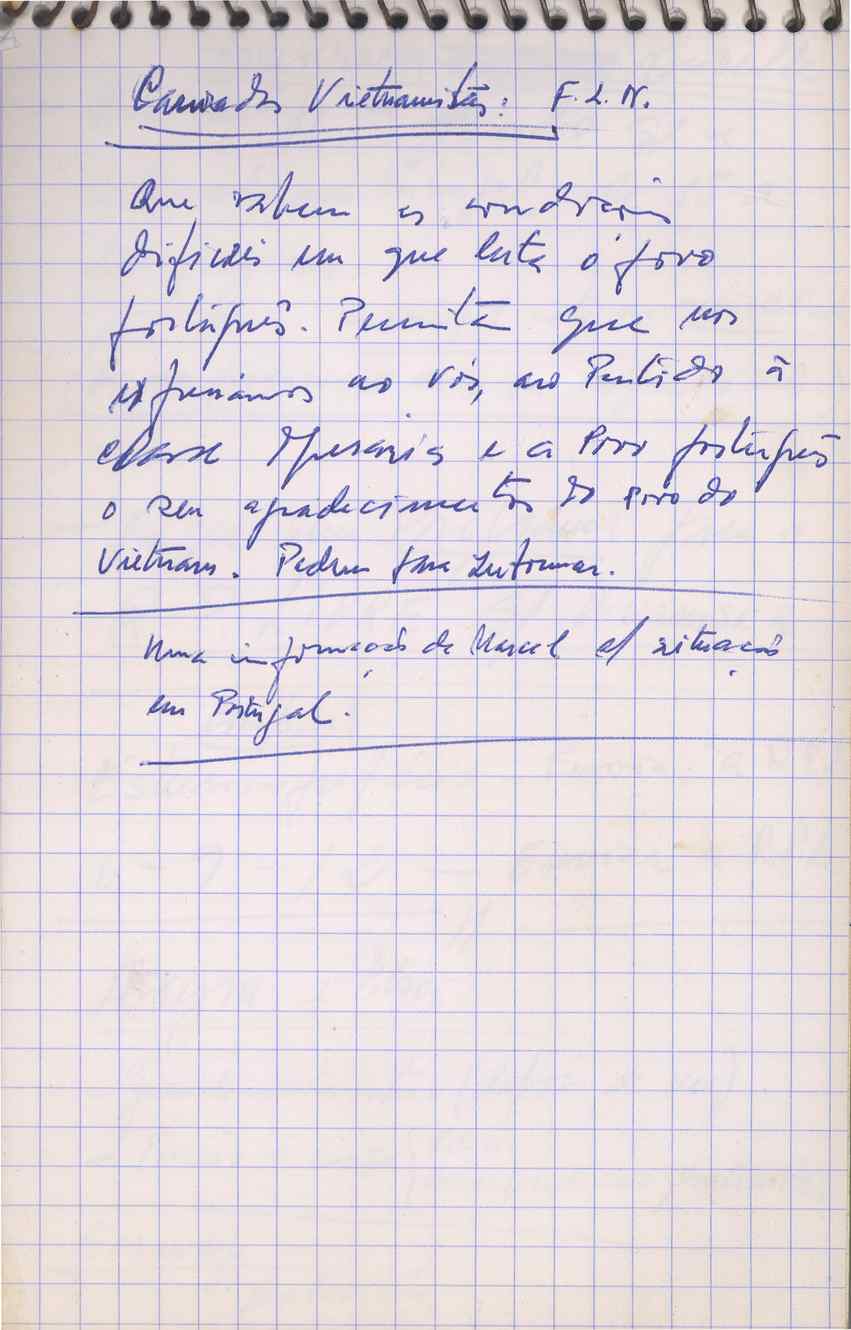 Camaradas Vietnamitas: F.L.N.
Que sabem as condições
dificieis em que luta o povo
português. Permita que nos
expressamos ao vós, ao Partido á
classe Operaria e a Povo português
o seu agradecimentos do povo do
Vietnam. Pedem para Informar.
Uma informação de Marcel s/ situação
em Portugal.